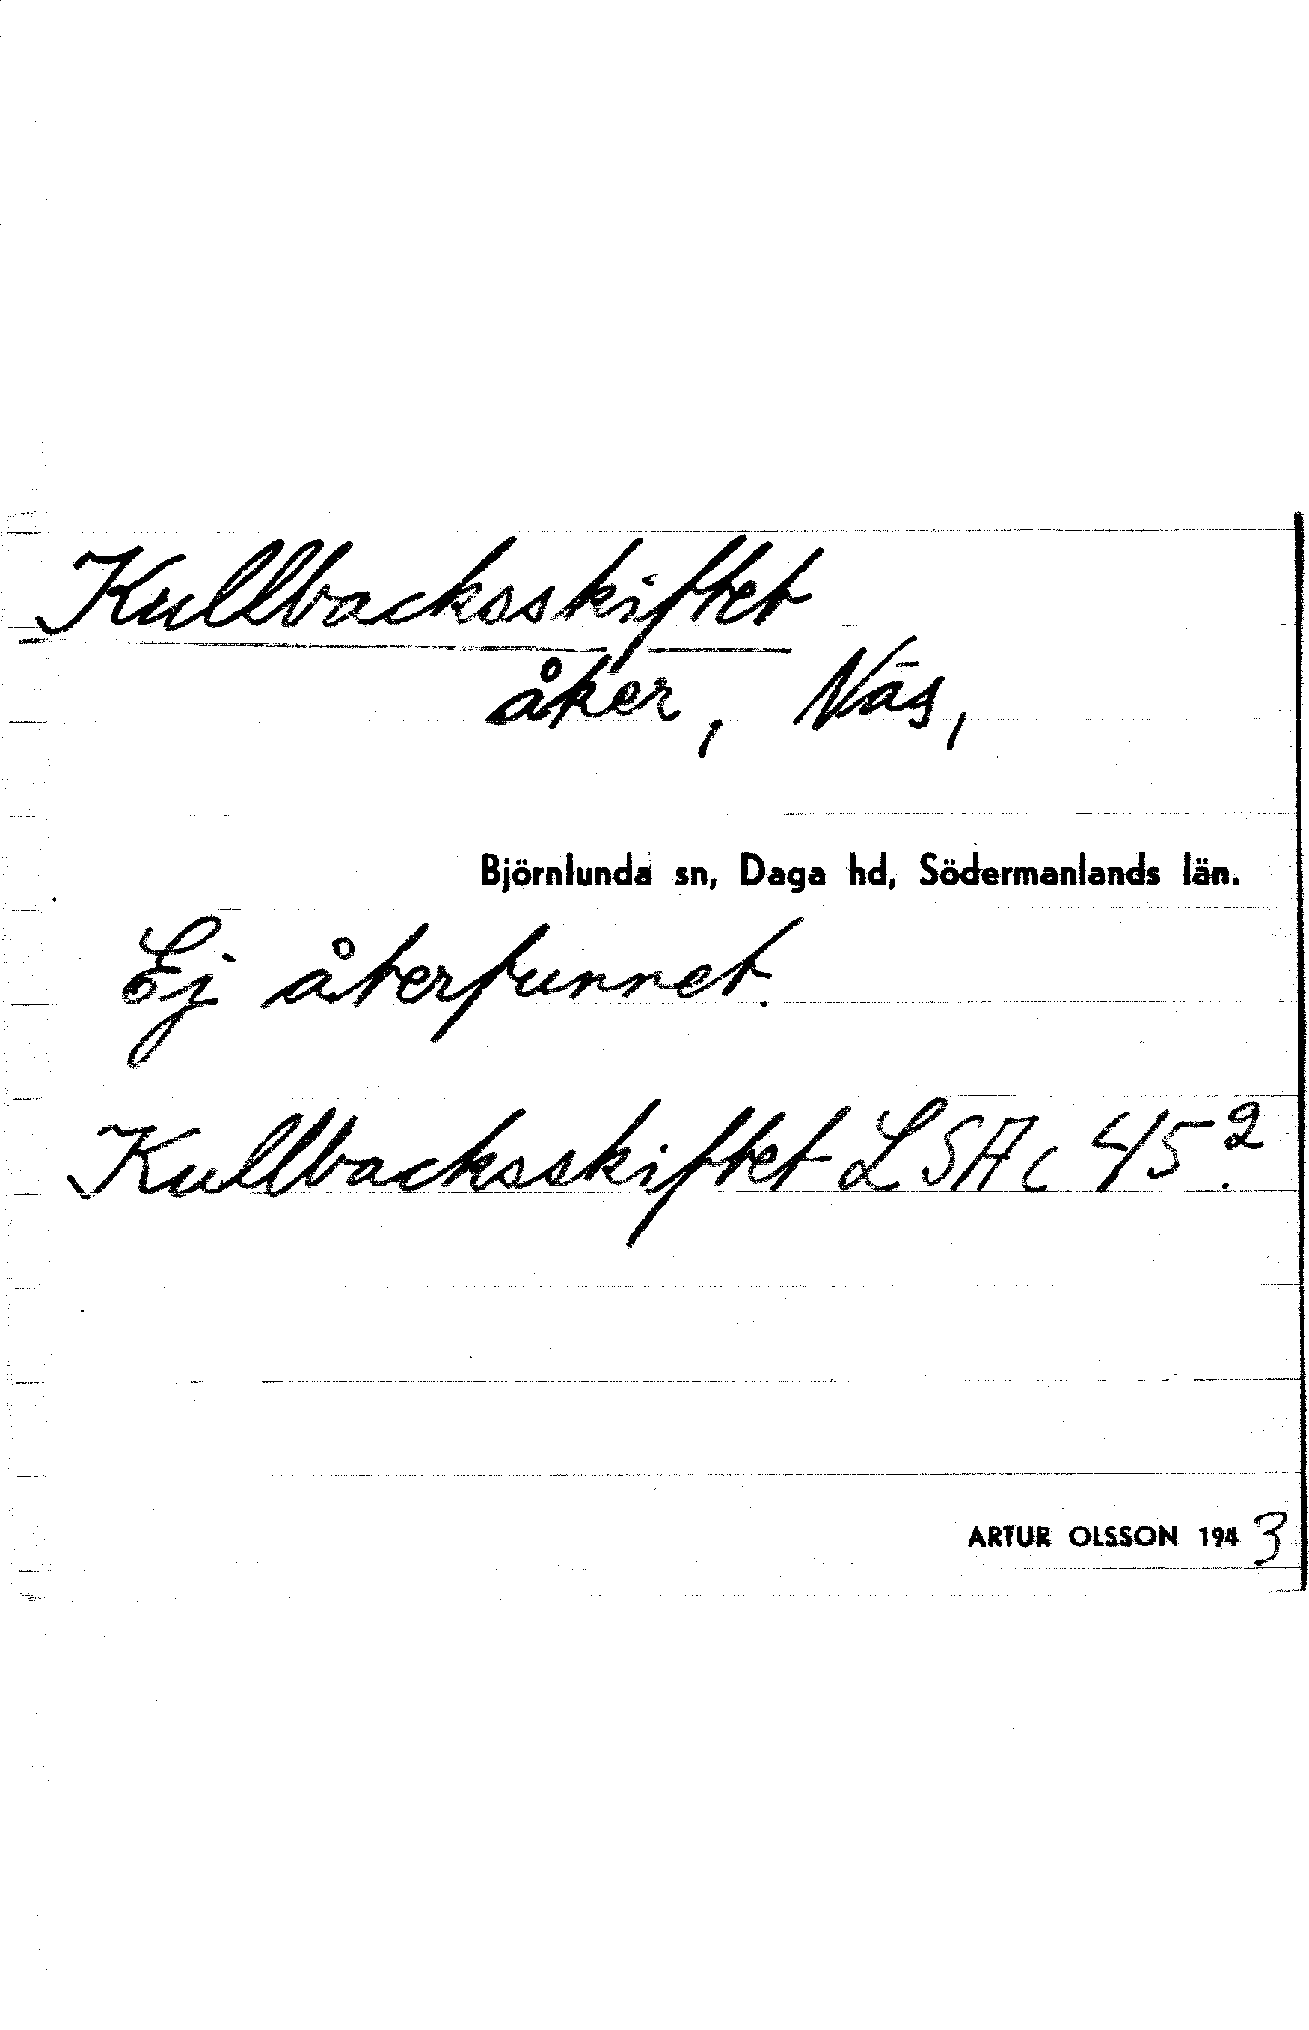 Kullbacksskiftet
åker, Näs,
Björnlunda sn, Daga hd, Södermanlands län.
Ej återfunnet.
Kullbacksskiftet LSA c 45².
ARTUR OLSSON 1943